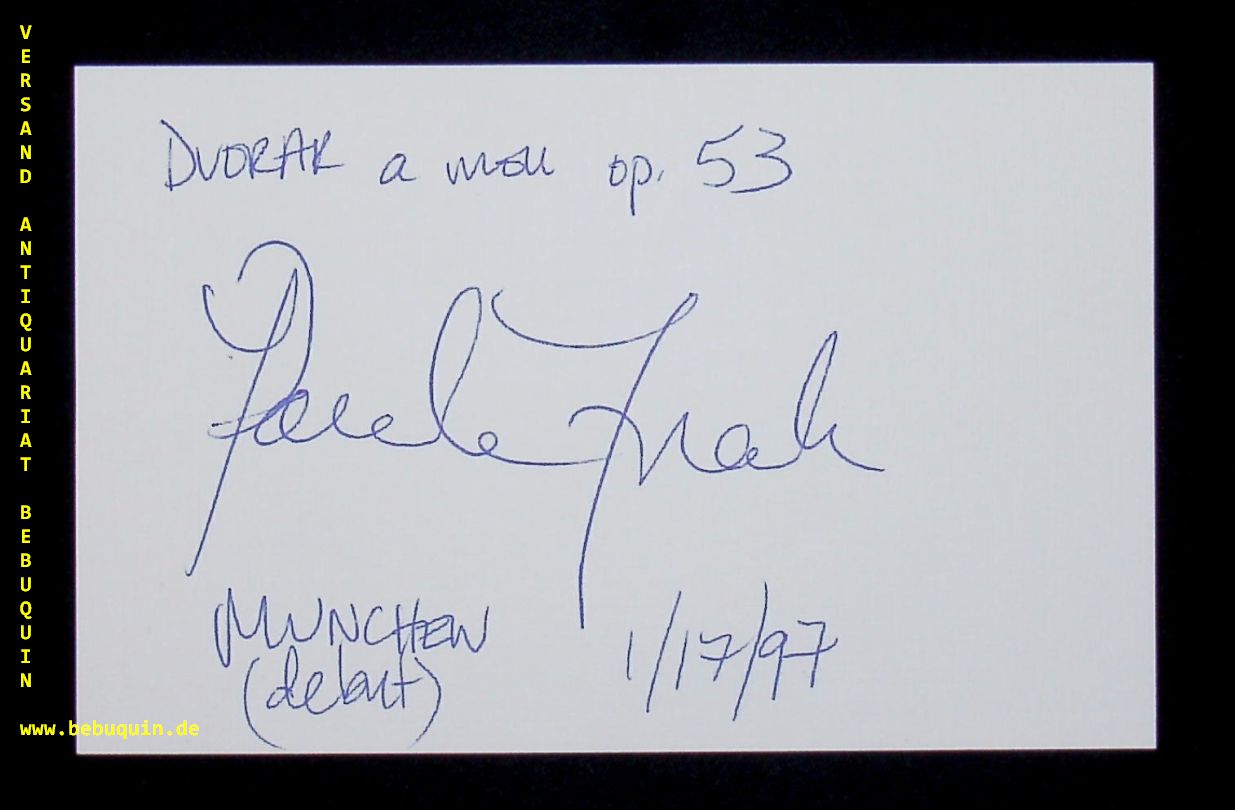 VERSAND ANTIQUARIAT BEBUQUIN
www.bebuquin.de
DVORAK a moll op. 53
Pamela Frank
MUNCHEN 1/17/97
(debut)